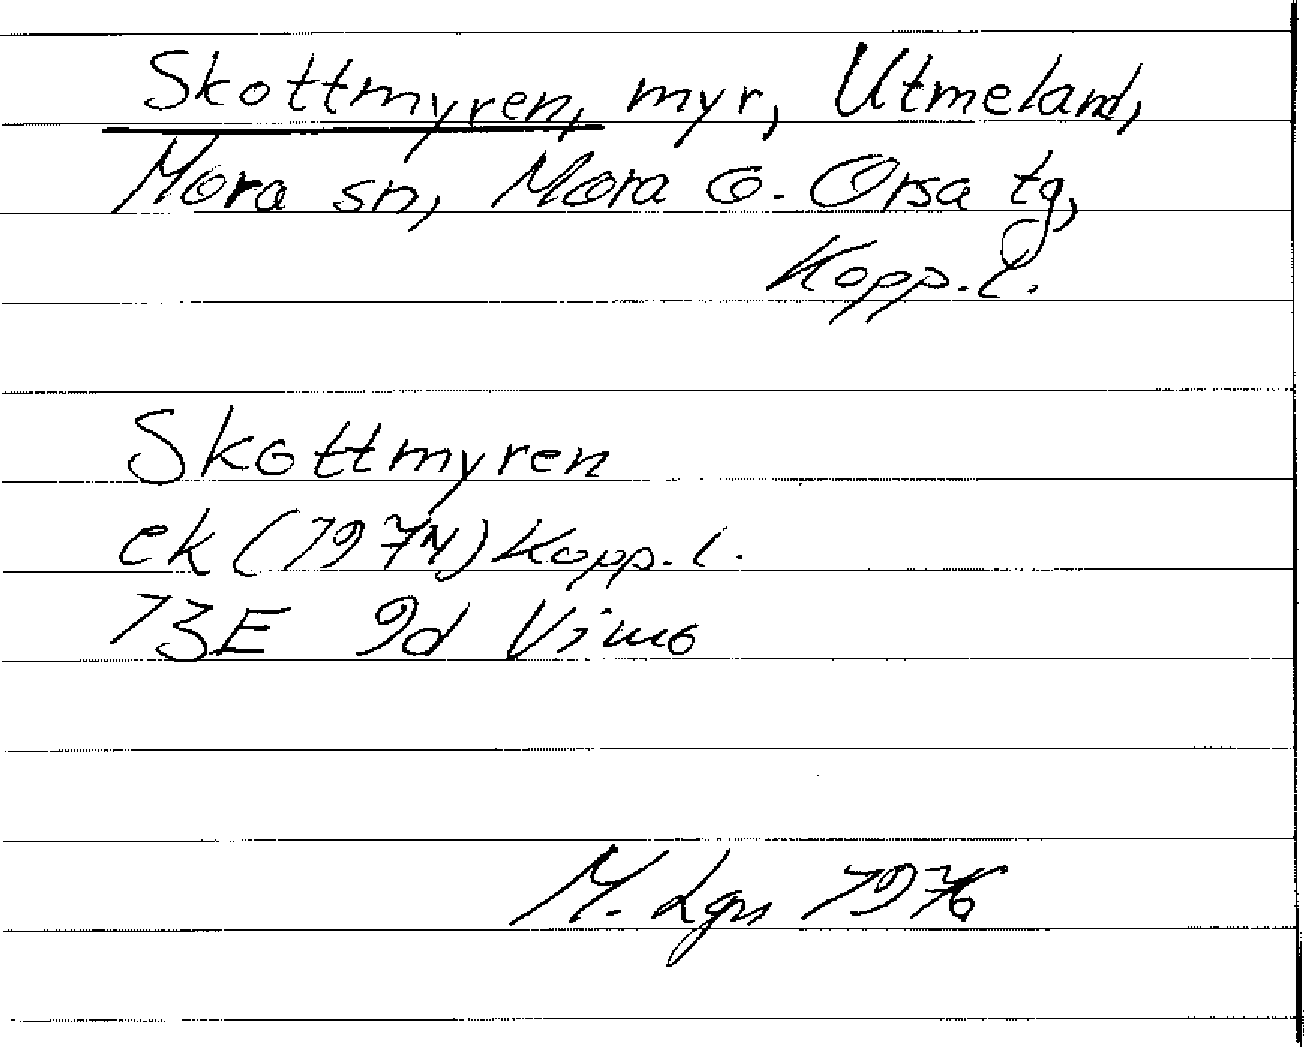 Skottmyren, myr, Utmeland,
Mora sn, Mora o. Orsa tg,
Kopp. l.
Skottmyren
ek (1974) Kopp. l.
13E 9d Vimo
M. Lgn 1976